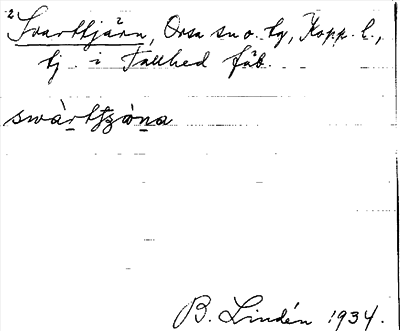 2 Svarttjärn, Orsa sn o. tg, Kopp. l.,
tj. i Tallhed fäb.
swàrttjzòna
B. Lindén 1934.